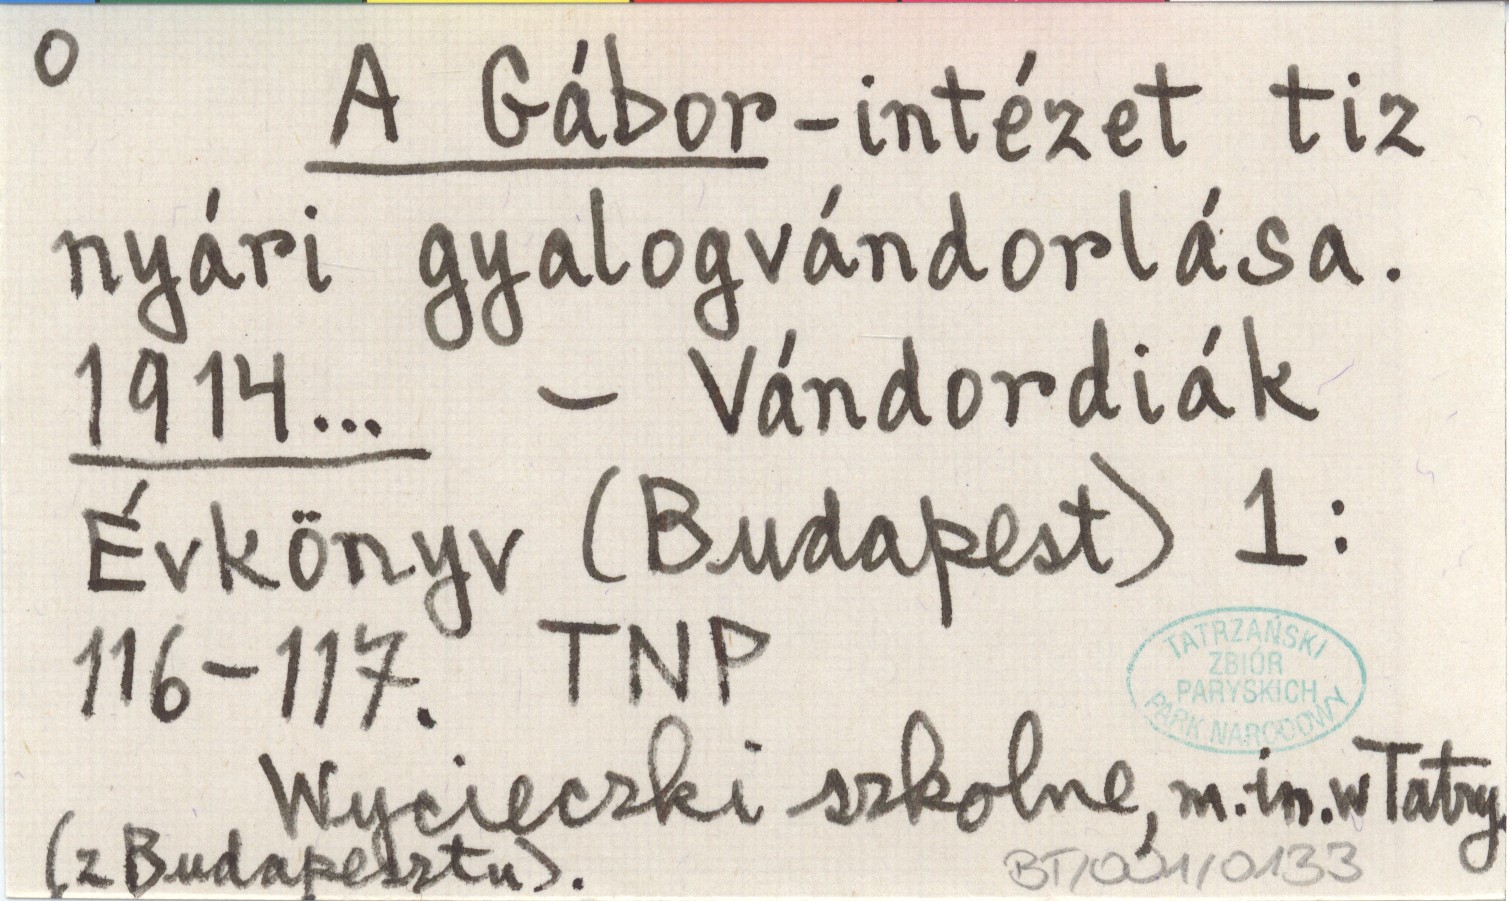 O
A Gábor-intézet tiz
nyári gyalogvándorlása.
1914... - Vándordiák
Évkönyv (Budapest) 1:
116-117. TNP
TATRZAŃSKI
ZBIÓR
PARYSKICH
PARK NARODOWY
Wycieczki szkolne, m.in. w Tatry
(z Budapesztu).
BT/001/0133